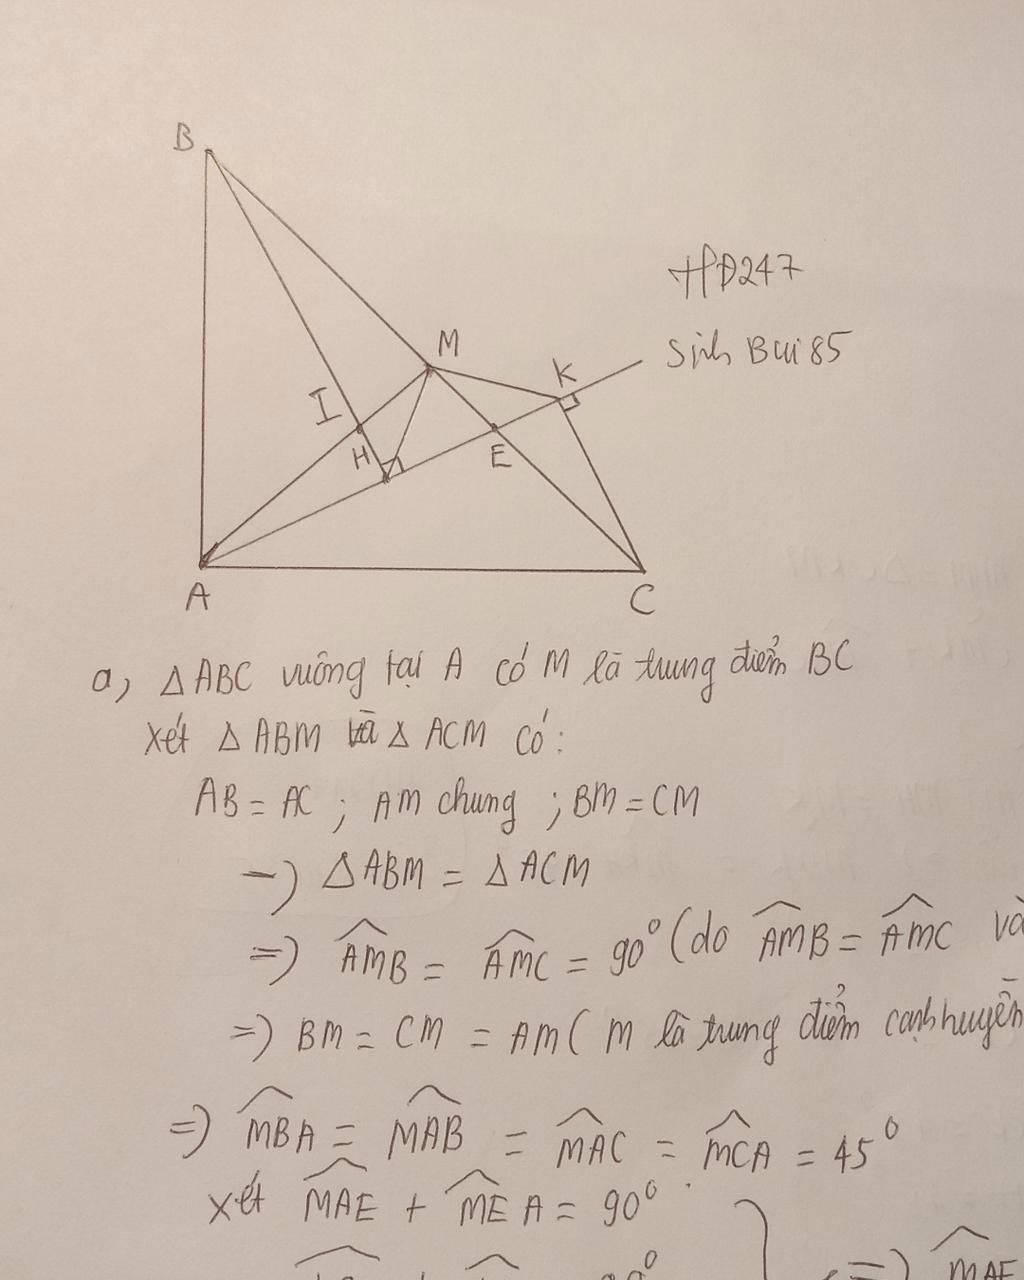 B
HĐ247
Sinh Bùi 85
M
K
I
H
E
A
C
a, Δ ABC vuông tại A có M là trung điểm BC
xét Δ ABM và Δ ACM có:
AB = AC ; AM chung ; BM = CM
-) Δ ABM = Δ ACM
=) \widehat{AMB} = \widehat{AMC} = 90° (do \widehat{AMB} = \widehat{AMC} và
=) BM = CM = AM ( M là trung điểm cạnh huyền
=) \widehat{MBA} = \widehat{MAB} = \widehat{MAC} = \widehat{MCA} = 45°
xét \widehat{MAE} + \widehat{MEA} = 90°
=) \widehat{MAE}